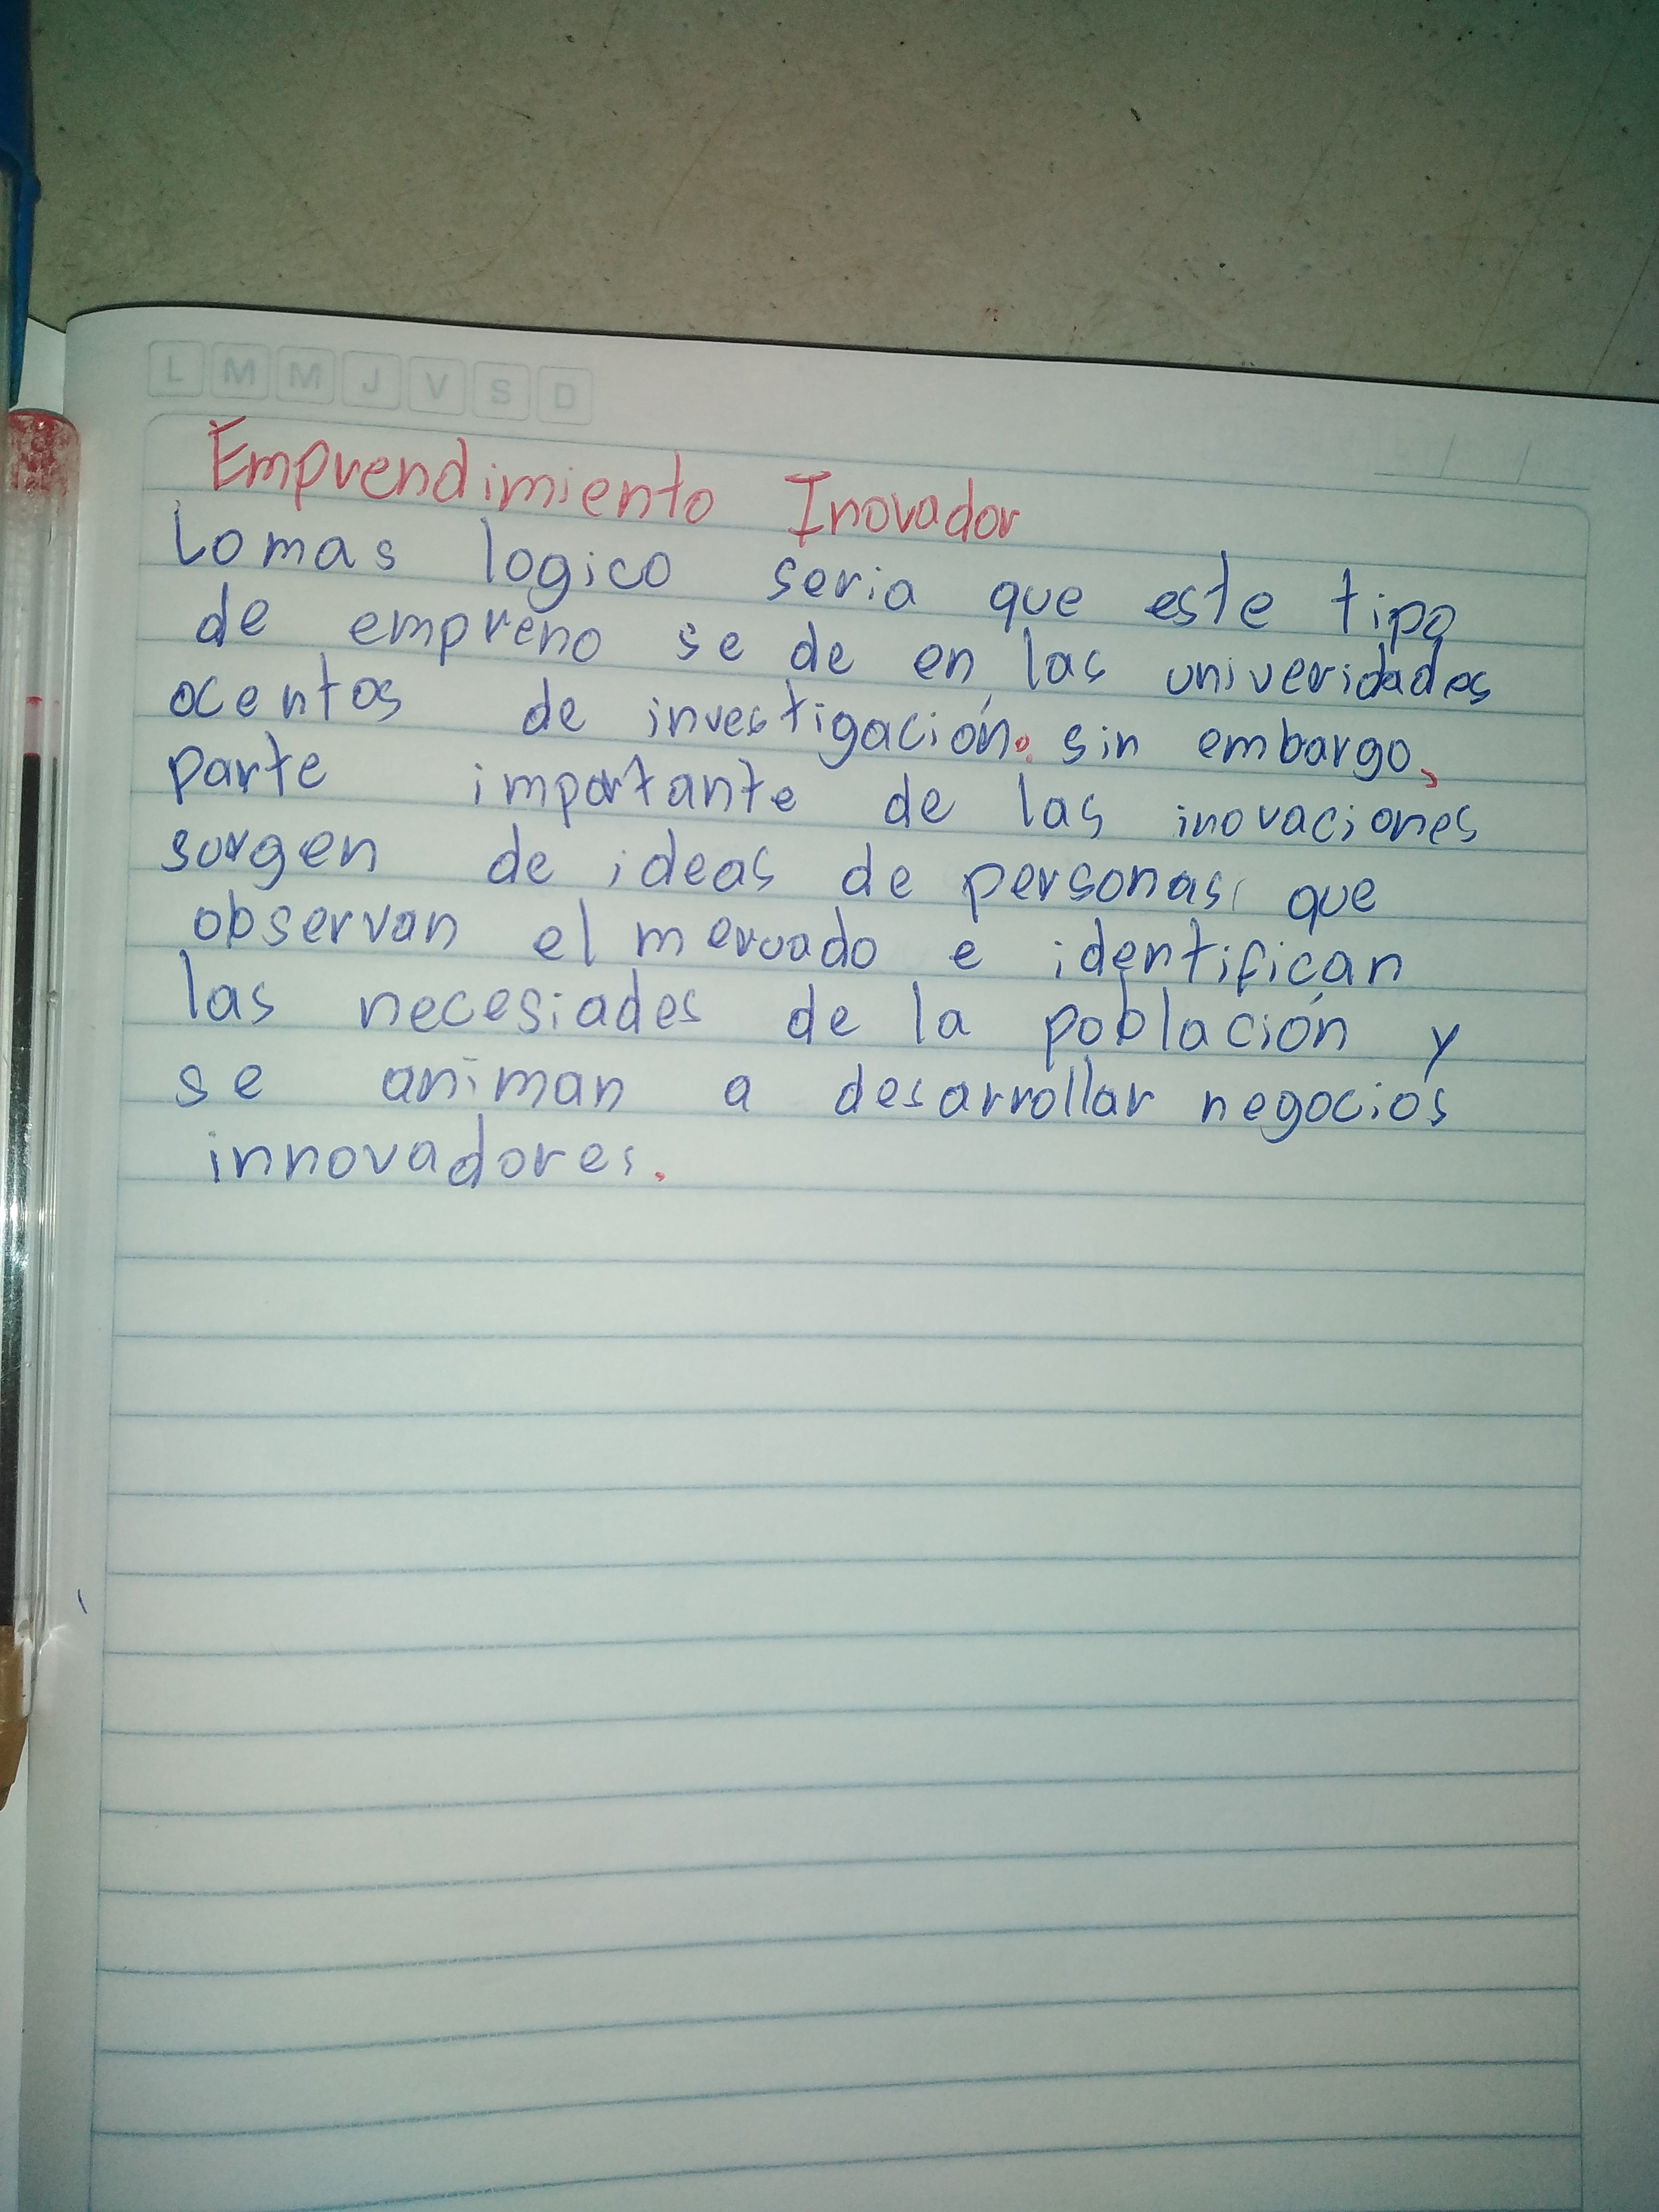 L M M J V S D
Emprendimiento Inovador
Lomas logico seria que este tipo
de empreno se de en las univeridades
ocentos de investigación. sin embargo,
parte importante de las inovaciones
surgen de ideas de personas que
observan el mercado e identifican
las necesiades de la población y
se animan a desarrollar negocios
innovadores.